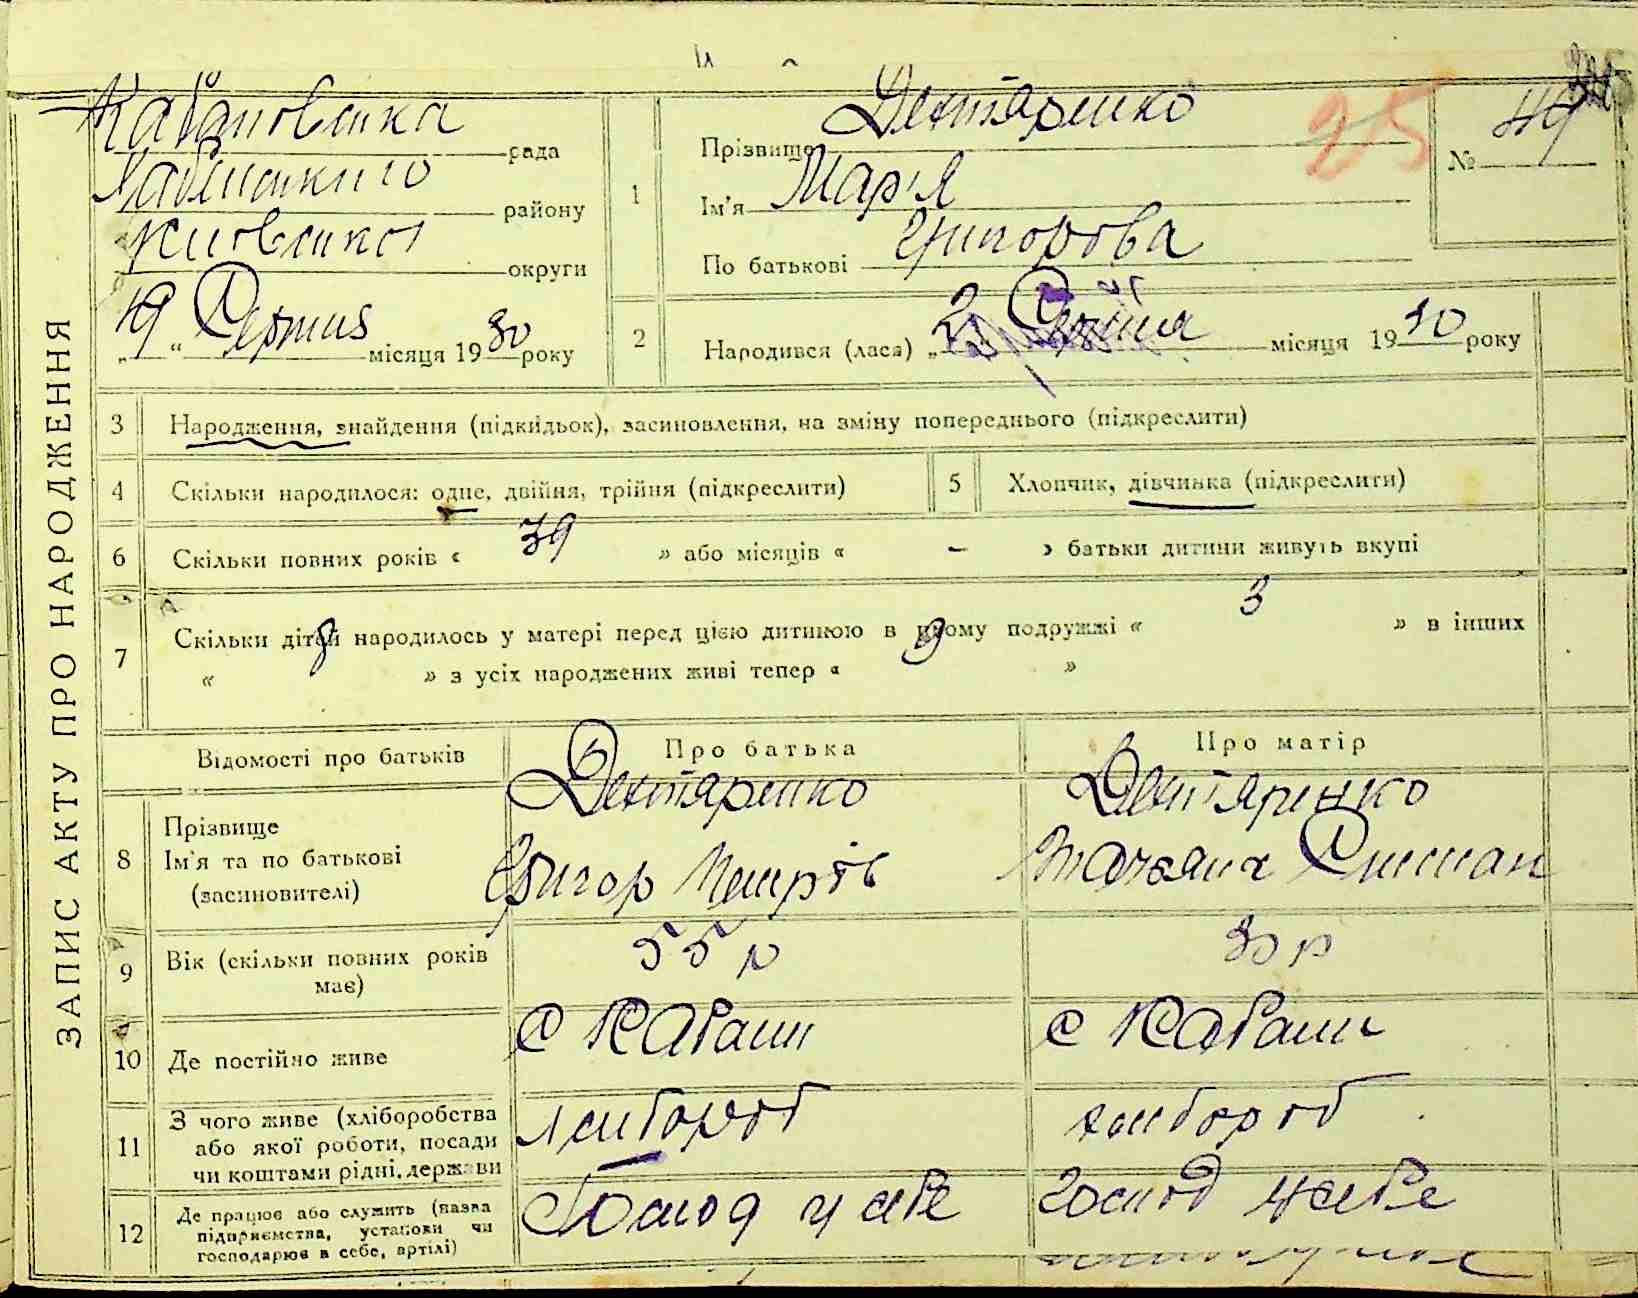 ЗАПИС АКТУ ПРО НАРОДЖЕННЯ
Кабановська рада
району
округи
19 Серпня місяця 1930 року
25
№ 49
1
Прізвище Дехтяренко
Ім'я Мар'я
По батькові Григорова
2
Народився (лася) „ 2 Серпня місяця 1930 року
3 Народження, знайдення (підкидьок), засиновлення, на зміну попереднього (підкреслити)
4 Скільки народилося: одне, двійня, трійня (підкреслити)
5 Хлопчик, дівчинка (підкреслити)
6 Скільки повних років « 39 » або місяців « – » батьки дитини живуть вкупі
7 Скільки дітей народилось у матері перед цією дитиною в цьому подружжі « 3 » в інших
« 8 » з усіх народжених живі тепер « 9 »
Відомості про батьків
Про батька
Про матір
8 Прізвище
Ім'я та по батькові
(засиновителі)
Дехтяренко
Григор
Дехтяренко
Татьяна
9 Вік (скільки повних років має)
55 р
30 р
10 Де постійно живе
с Кабани
с Кабани
11 З чого живе (хліборобства
або якої роботи, посади
чи коштами рідні, держави
хлібороб
хлібороб
12 Де працює або служить (назва
підприємства, установи чи
господарює в себе, артілі)
Господ у себе
господ у себе